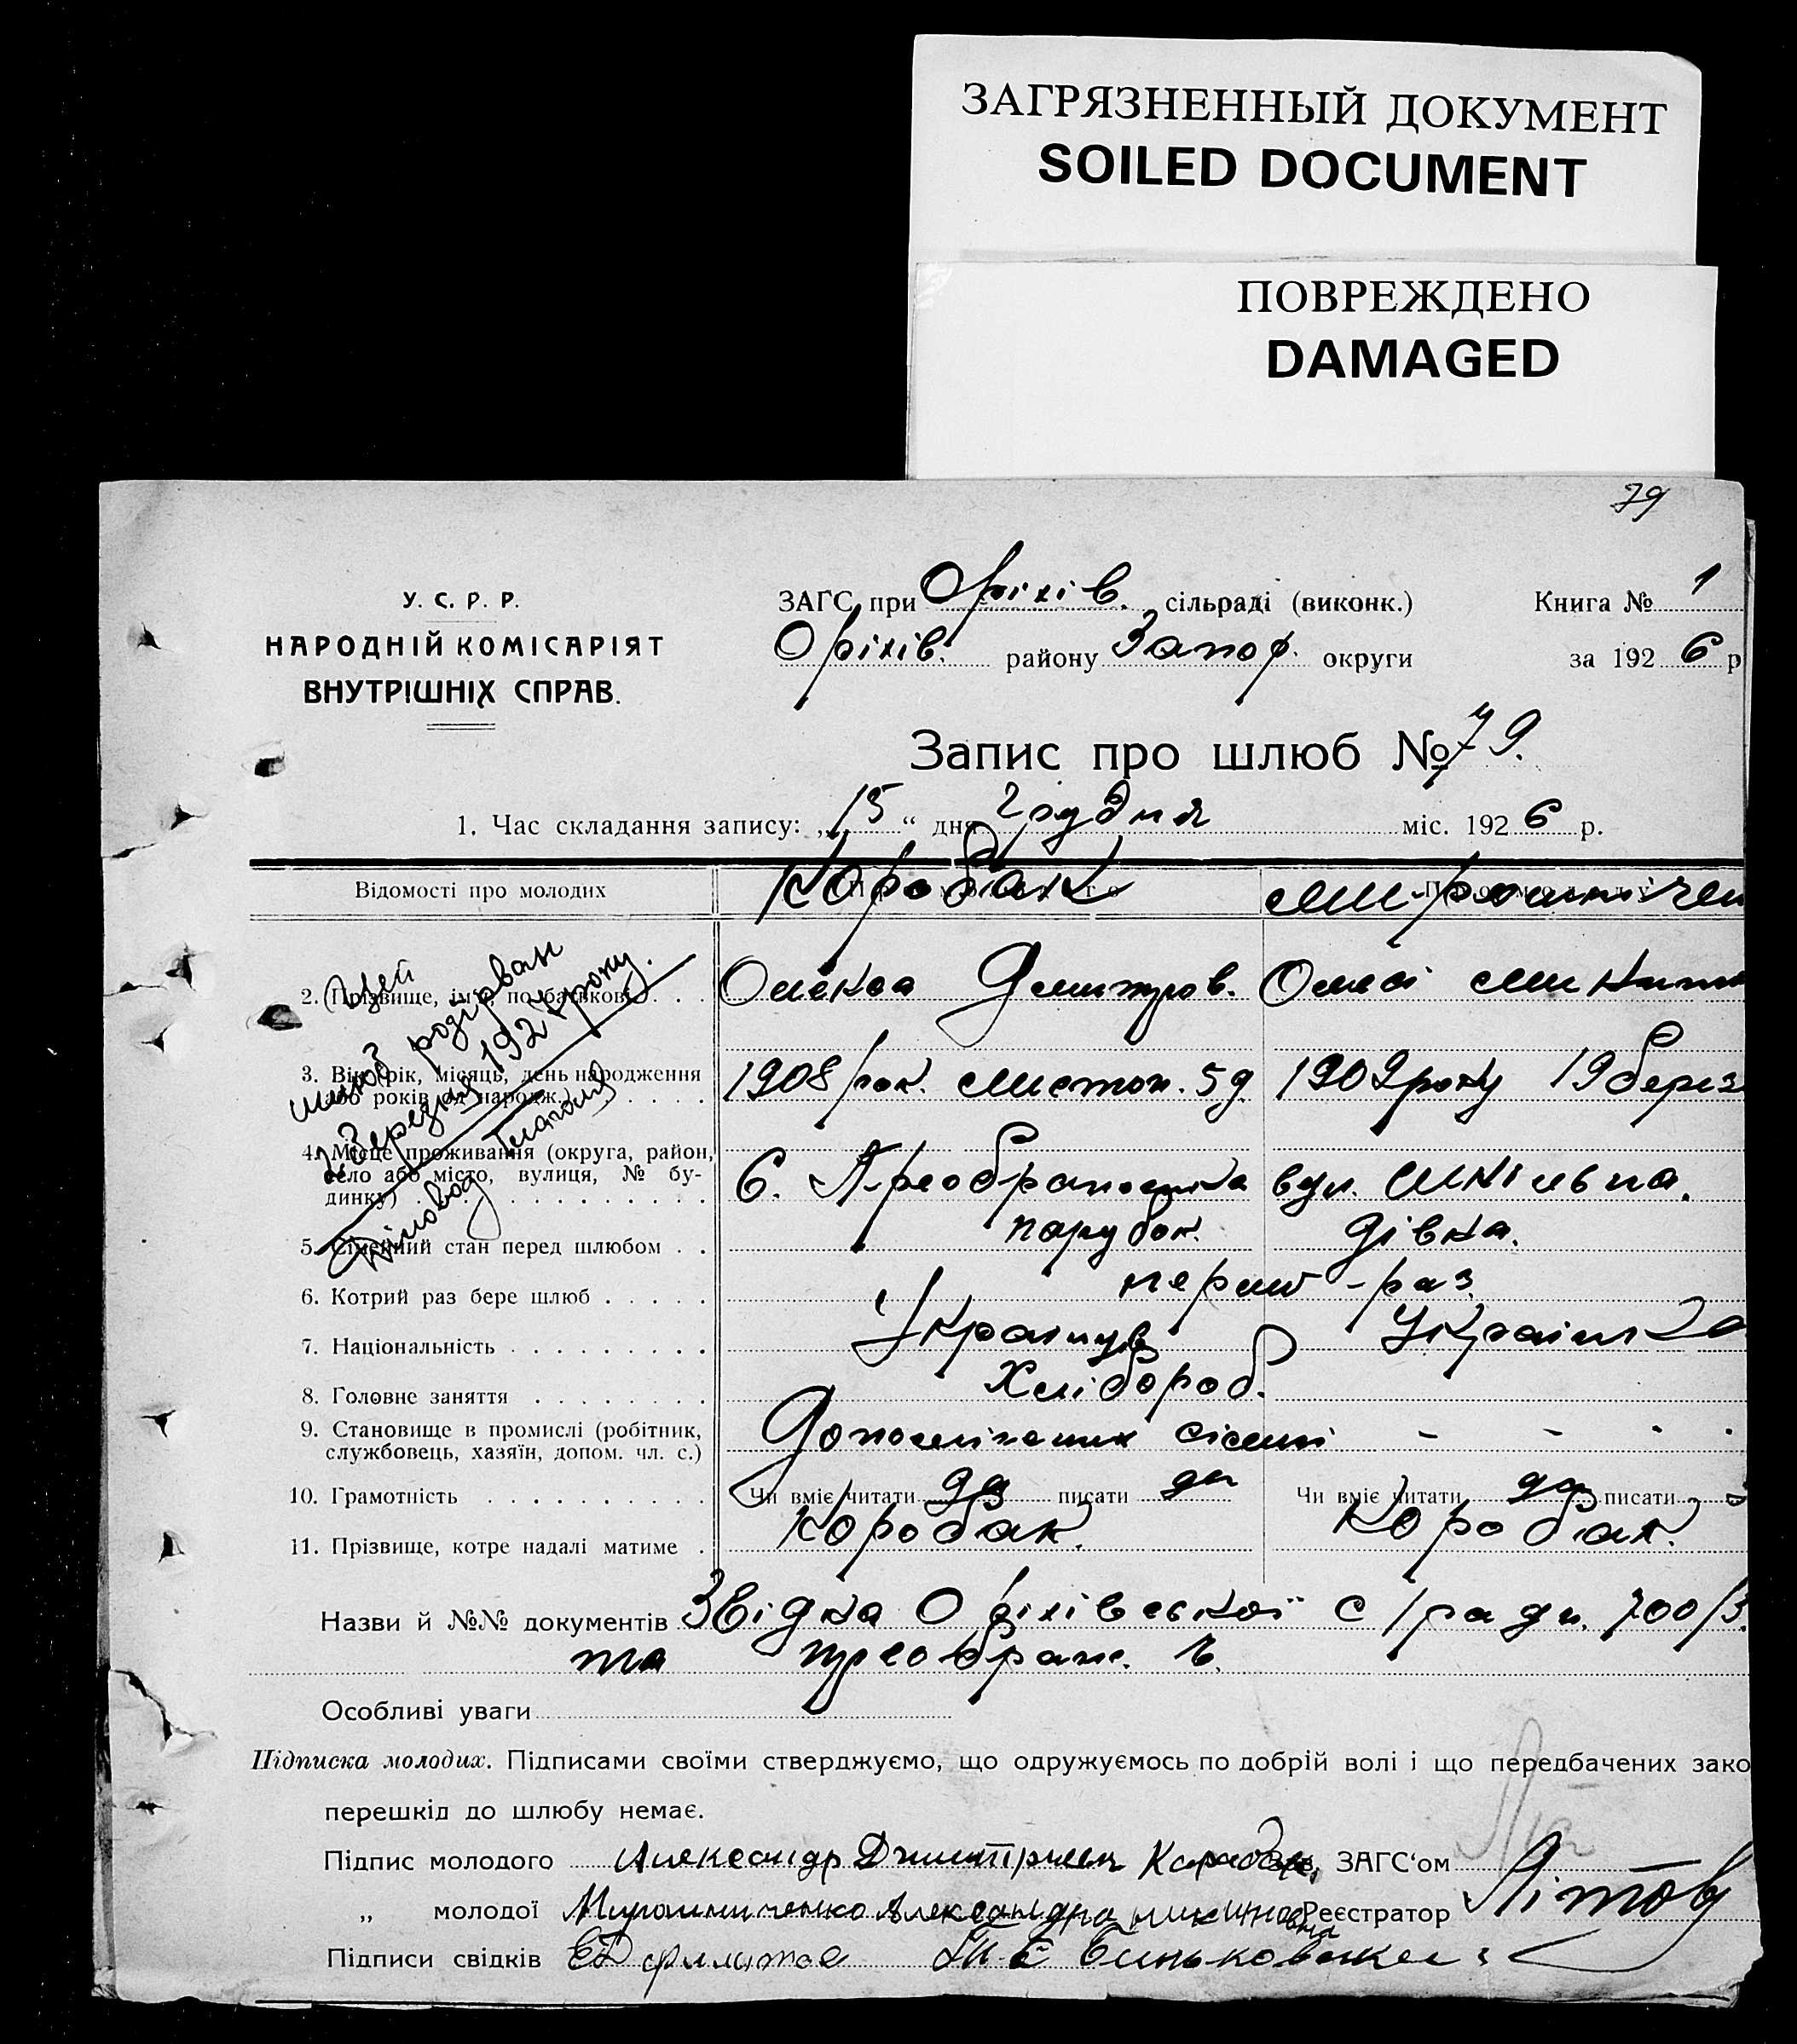 ЗАГРЯЗНЕННЫЙ ДОКУМЕНТ
SOILED DOCUMENT
ПОВРЕЖДЕНО
DAMAGED
79
У. С. Р. Р.
НАРОДНІЙ КОМІСАРІЯТ
ВНУТРІШНІХ СПРАВ.
ЗАГС при Оріхів. сільраді (виконк.)
Оріхів. району Запор. округи
Книга № 1
за 1926 р
Запис про шлюб № 79.
1. Час складання запису: „15“ дня грудня міс. 1926 р.
Відомості про молодих
Коробак
Мирошничен
Цей шлюб розірван
2 березня 1927 року.
2. Прізвище, ім'я, по батькові . . . Олекса Дмитров. Олесі Микит
3. Вік (рік, місяць, день народження або років од народж.) . . . . . 1908 рок. листоп. 5 д. 1909 року 19 берез
4. Місце проживання (округа, район, село або місто, вулиця, № будинку) . . . . . С. Преображенка вул. Шкільна.
5. Сімейний стан перед шлюбом . . парубок. дівка.
6. Котрий раз бере шлюб . . . . . перший раз
7. Національність . . . . . . . . . Українців Українка
8. Головне заняття . . . . . . . . Хлібороб.
9. Становище в промислі (робітник, службовець, хазяїн, допом. чл. с.) сімї - - - -
10. Грамотність . . . . . . . . . . Чи вміє читати да писати да Чи вміє читати да писати
11. Прізвище, котре надалі матиме . Коробак. Коробак.
Назви й №№ документів Звідка Оріхівської с/ради. 700/3.
та преображ.
Особливі уваги
Підписка молодих. Підписами своїми стверджуємо, що одружуємось по добрій волі і що передбачених зако
перешкід до шлюбу немає.
Підпис молодого Александр Дмитриев Коробак Зав. ЗАГС'ом
„ молодої Мирошниченко Александра Никитовна Реєстратор Літов
Підписи свідків